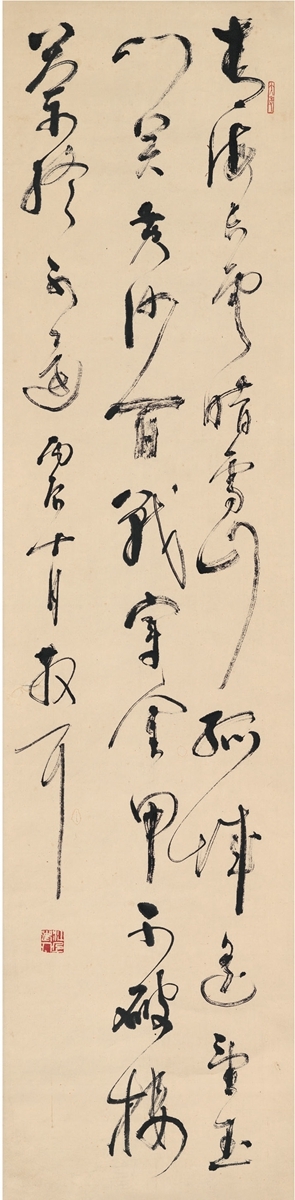 青海長雲暗雪山孤城遙望玉
門關黃沙百戰穿金甲不破樓
蘭終不還丙辰十月散耳